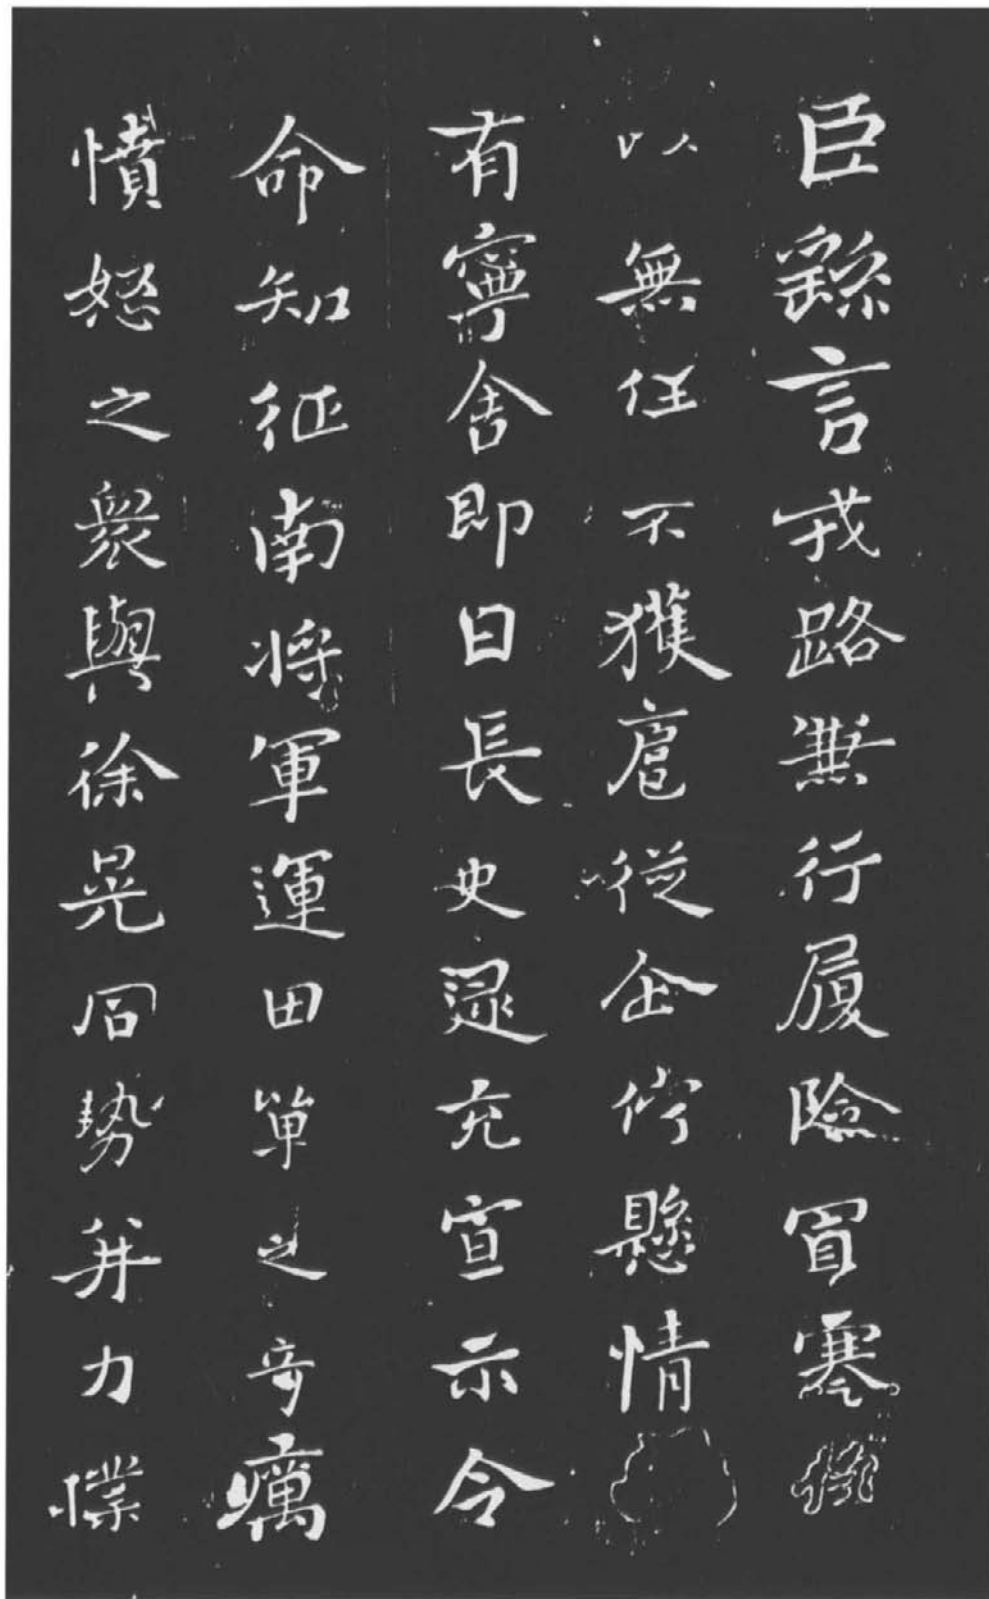 臣繇言戎路兼行履險冒寒
以無任不獲扈從企佇懸情
有寧舍即日長史逯充宣示令
命知征南將軍運田單之奇厲
憤怒之衆與徐晃同勢并力撲